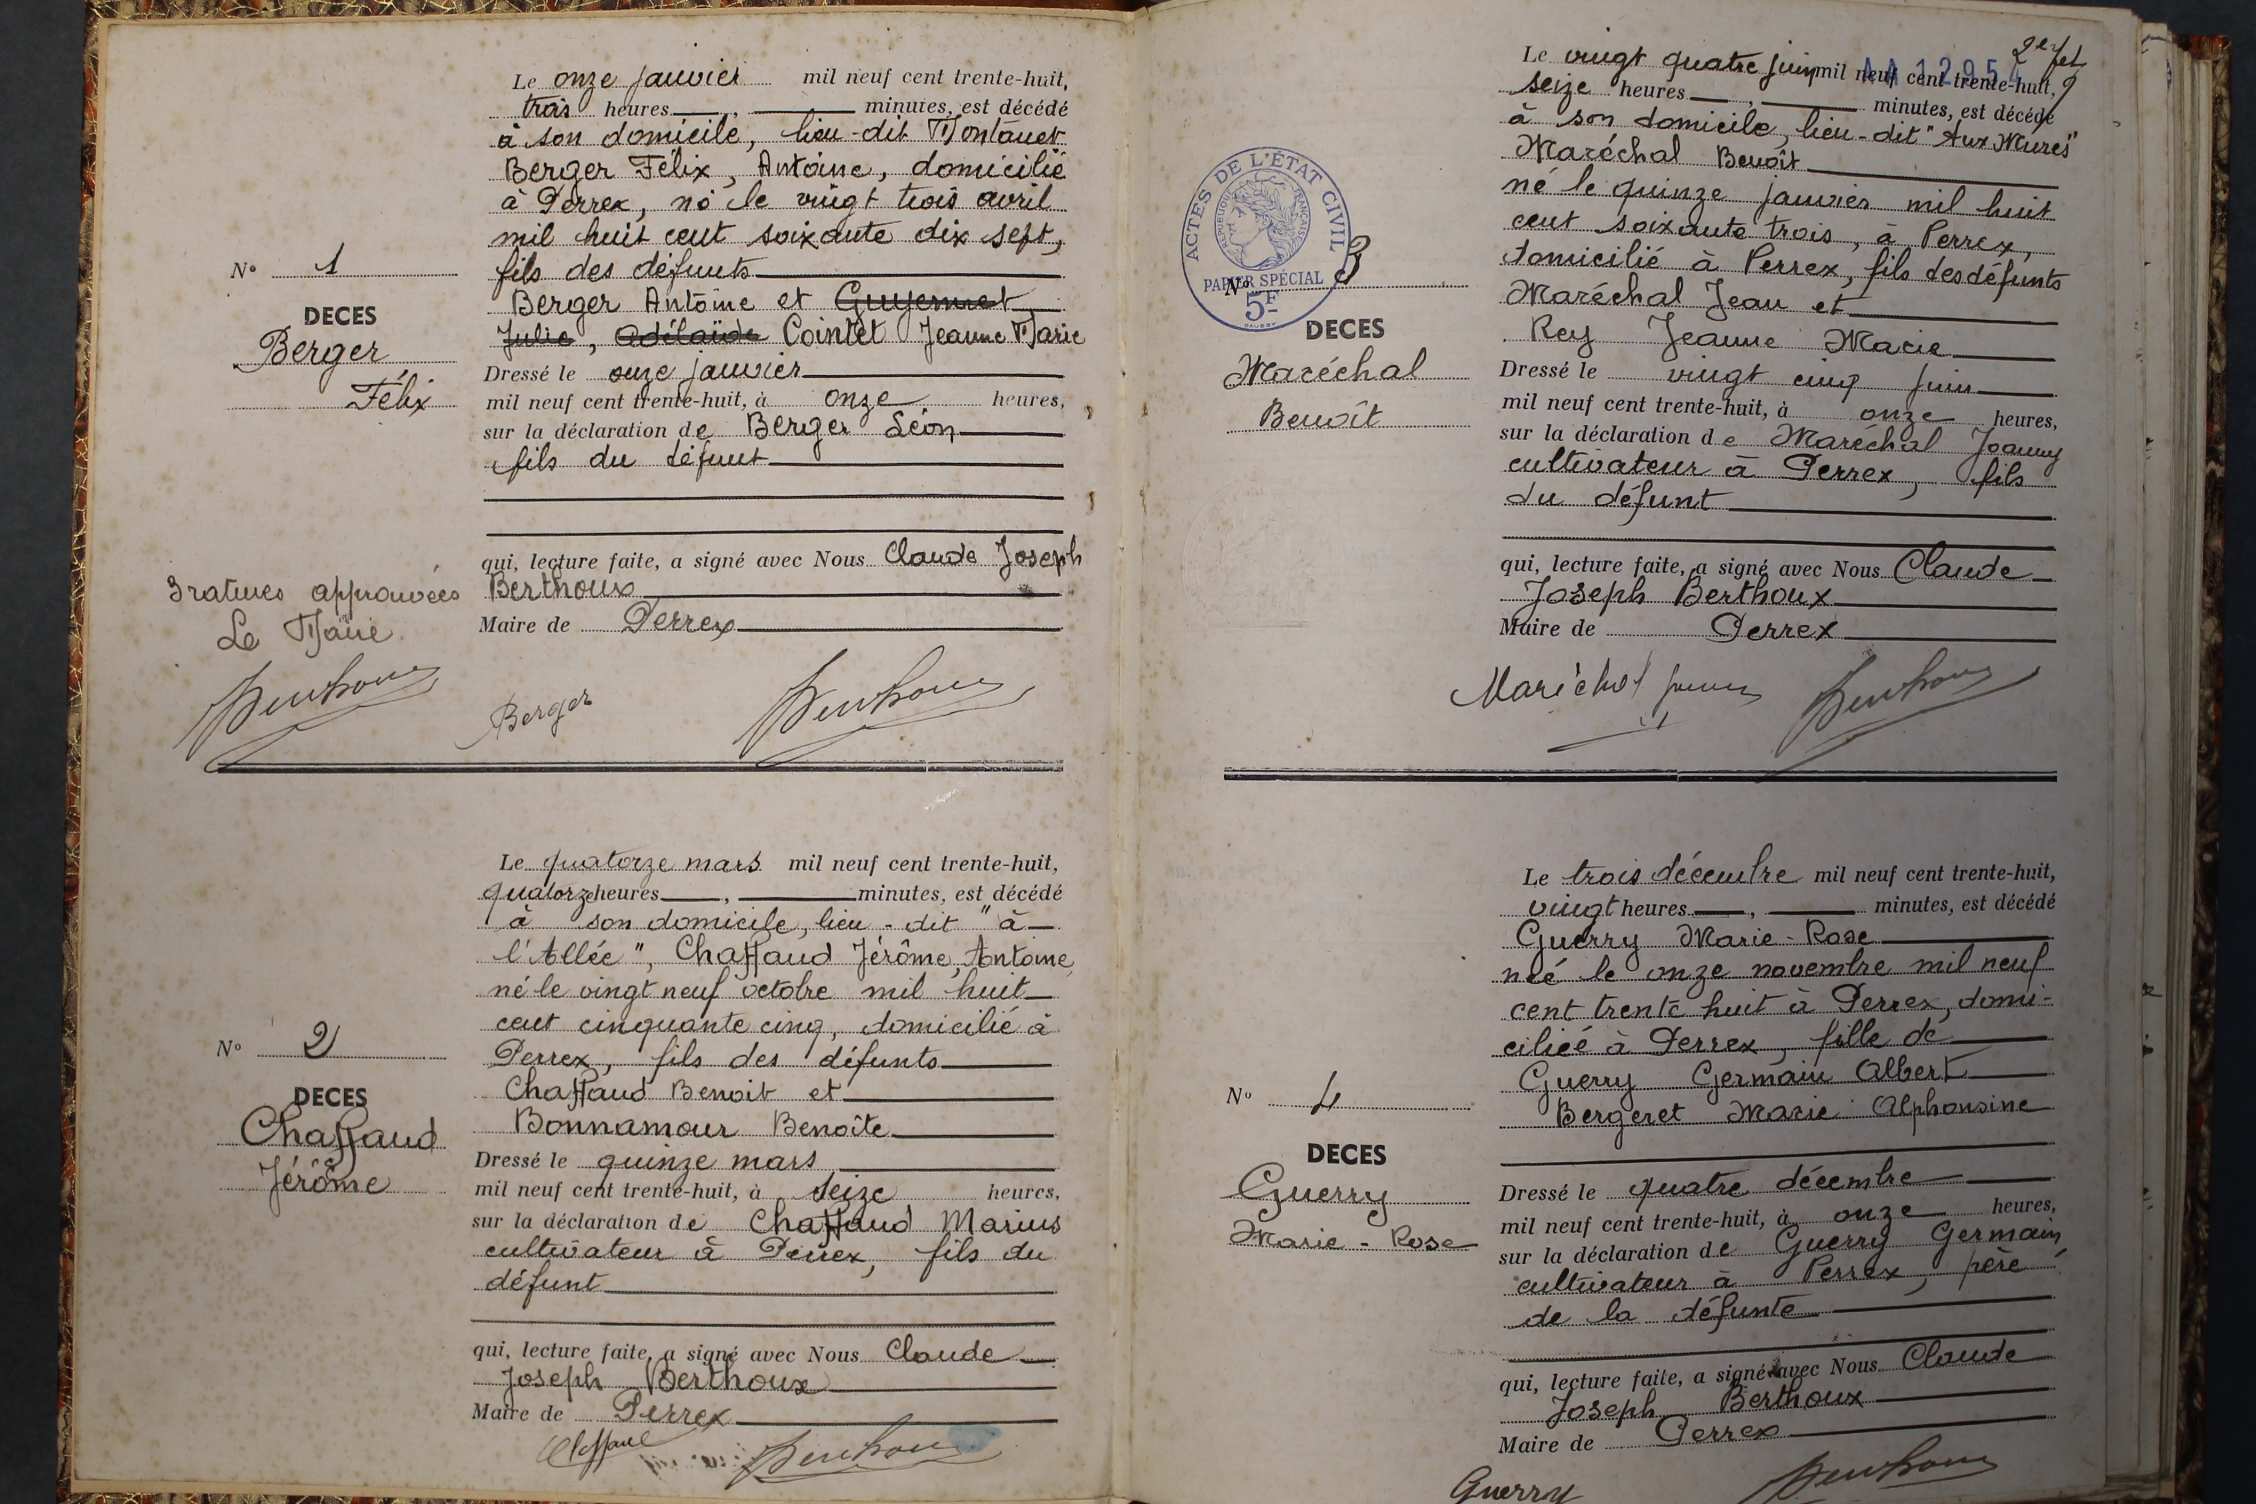 Le onze janvier mil neuf cent trente-huit,
trois heures , minutes, est décédé
à son domicile, lieu-dit Montanet
Berger Félix, Antoine, domicilié
à Perrex, né le vingt trois avril
mil huit cent soixante dix sept,
N° 1
fils des défunts
DECES
Berger Antoine et Guyennet
Berger
Julie, Adélaïde Cointet Jeanne Marie
Félix
Dressé le onze janvier
mil neuf cent trente-huit, à onze heures,
sur la déclaration de Berger Léon
fils du défunt
qui, lecture faite, a signé avec Nous Claude Joseph
3 ratures approuvées
Berthoux
Le Maire
Maire de Perrex
Berthoux
Berger
Berthoux
Le quatorze mars mil neuf cent trente-huit,
quatorze heures , minutes, est décédé
à son domicile, lieu-dit "à
l'Allée", Chaffaud Jérôme, Antoine
né le vingt neuf octobre mil huit
cent cinquante cinq, domicilié à
N° 2
Perrex, fils des défunts
DECES
Chaffaud Benoit et
Chaffaud
Bonnamour Benoîte
Jérôme
Dressé le quinze mars
mil neuf cent trente-huit, à seize heures,
sur la déclaration de Chaffaud Marius
cultivateur à Perrex, fils du
défunt
qui, lecture faite, a signé avec Nous Claude
Joseph Berthoux
Maire de Perrex
Chaffaud
Berthoux
2e fet
9
Le vingt quatre juin mil neuf cent trente-huit,
seize heures , minutes, est décédé
à son domicile, lieu-dit "Aux Mures"
Maréchal Benoît
né le quinze janvier mil huit
cent soixante trois, à Perrex,
domicilié à Perrex, fils des défunts
ACTES DE L'ÉTAT CIVIL
RÉPUBLIQUE FRANÇAISE
PAPIER SPÉCIAL
5F
N° 3
Maréchal Jean et
DECES
Rey Jeanne Marie
Maréchal
Dressé le vingt cinq juin
Benoît
mil neuf cent trente-huit, à onze heures,
sur la déclaration de Maréchal Joanny
cultivateur à Perrex, fils
du défunt
qui, lecture faite, a signé avec Nous Claude
Joseph Berthoux
Maire de Perrex
Maréchal
Berthoux
Le trois décembre mil neuf cent trente-huit,
vingt heures , minutes, est décédé
Guerry Marie-Rose
née le onze novembre mil neuf
cent trente huit à Perrex, domi-
ciliée à Perrex, fille de
Guerry Germain Albert
N° 4
Bergeret Marie Alphonsine
DECES
Guerry
Dressé le quatre décembre
Marie-Rose
mil neuf cent trente-huit, à onze heures,
sur la déclaration de Guerry Germain,
cultivateur à Perrex, père
de la défunte
qui, lecture faite, a signé avec Nous Claude
Joseph Berthoux
Maire de Perrex
Guerry
Berthoux